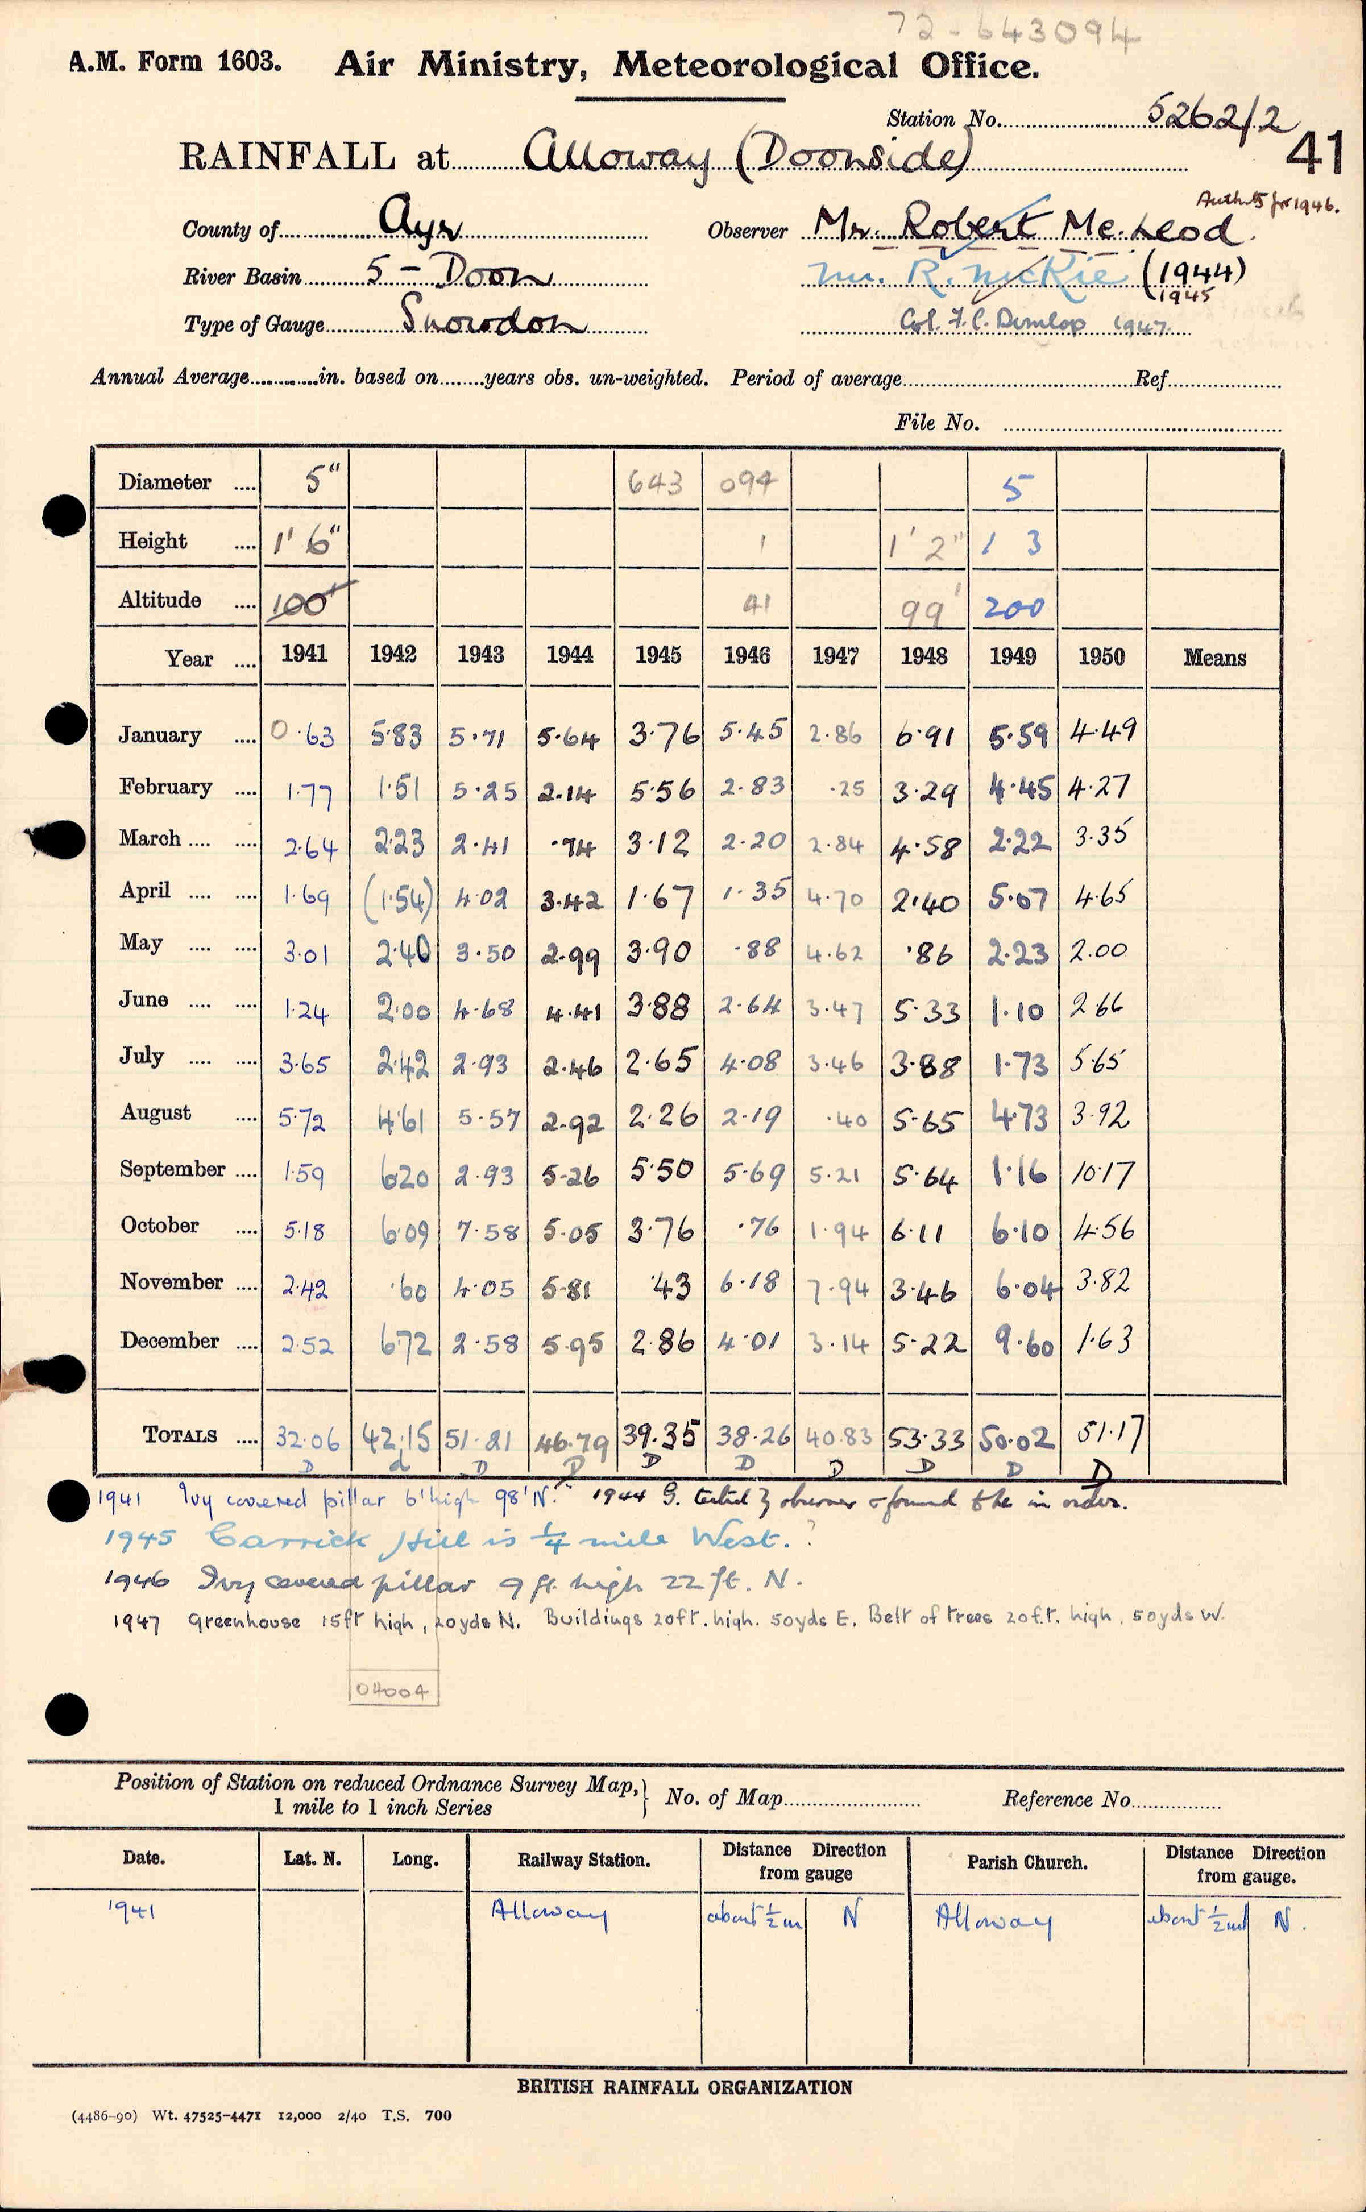 72-643094
A.M. Form 1603. Air Ministry, Meteorological Office.
Station No. 5262/2
41
RAINFALL at Alloway (Doonside)
County of Ayr Observer Mr. Robert McLeod for 1946.
River Basin 5 - Doon Mr. R. McKie (1944) 1945
Type of Gauge Snowdon Col. F.C. Dunlop 1947
Annual Average in. based on years obs. un-weighted. Period of average Ref
File No.
Diameter .... 5" 643 094 5
Height .... 1' 6" 1 1' 2" 1 3
Altitude .... 100' 41 99' 200
Year .... 1941 1942 1943 1944 1945 1946 1947 1948 1949 1950 Means
January .... 0.63 5.83 5.71 5.64 3.76 5.45 2.86 6.91 5.59 4.49
February .... 1.77 1.51 5.25 2.14 5.56 2.83 .25 3.29 4.45 4.27
March .... .... 2.64 2.23 2.41 .74 3.12 2.20 2.84 4.58 2.22 3.35
April .... .... 1.69 (1.54) 4.02 3.42 1.67 1.35 4.70 2.40 5.07 4.65
May .... .... 3.01 2.40 3.50 2.99 3.90 .88 4.62 .86 2.23 2.00
June .... .... 1.24 2.00 4.68 4.41 3.88 2.64 3.47 5.33 1.10 2.66
July .... .... 3.65 2.42 2.93 2.46 2.65 4.08 3.46 3.88 1.73 5.65
August .... 5.72 4.61 5.57 2.92 2.26 2.19 .40 5.65 4.73 3.92
September .... 1.59 6.20 2.93 5.26 5.50 5.69 5.21 5.64 1.16 10.17
October .... 5.18 6.09 7.58 5.05 3.76 .76 1.94 6.11 6.10 4.56
November .... 2.42 .60 4.05 5.81 .43 6.18 7.94 3.46 6.04 3.82
December .... 2.52 6.72 2.58 5.95 2.86 4.01 3.14 5.22 9.60 1.63
TOTALS .... 32.06 42.15 51.21 46.79 39.35 38.26 40.83 53.33 50.02 51.17
D d D D D D D D D D
1941 Ivy covered pillar 6' high 98' N. 1944 G. tested by observer & found to be in order.
1945 Carrick Hill is ¼ mile West. ?
1946 Ivy covered pillar 9 ft. high 22 ft. N.
1947 Greenhouse 15ft high, 20yds N. Buildings 20ft. high. 50yds E. Belt of trees 20ft. high, 50yds W.
04004
Position of Station on reduced Ordnance Survey Map, 1 mile to 1 inch Series } No. of Map Reference No
Date. Lat. N. Long. Railway Station. Distance Direction from gauge Parish Church. Distance Direction from gauge.
1941 Alloway about ½ m N Alloway about ½ ml N.
BRITISH RAINFALL ORGANIZATION
(4486-90) Wt. 47525-4471 12,000 2/40 T.S. 700